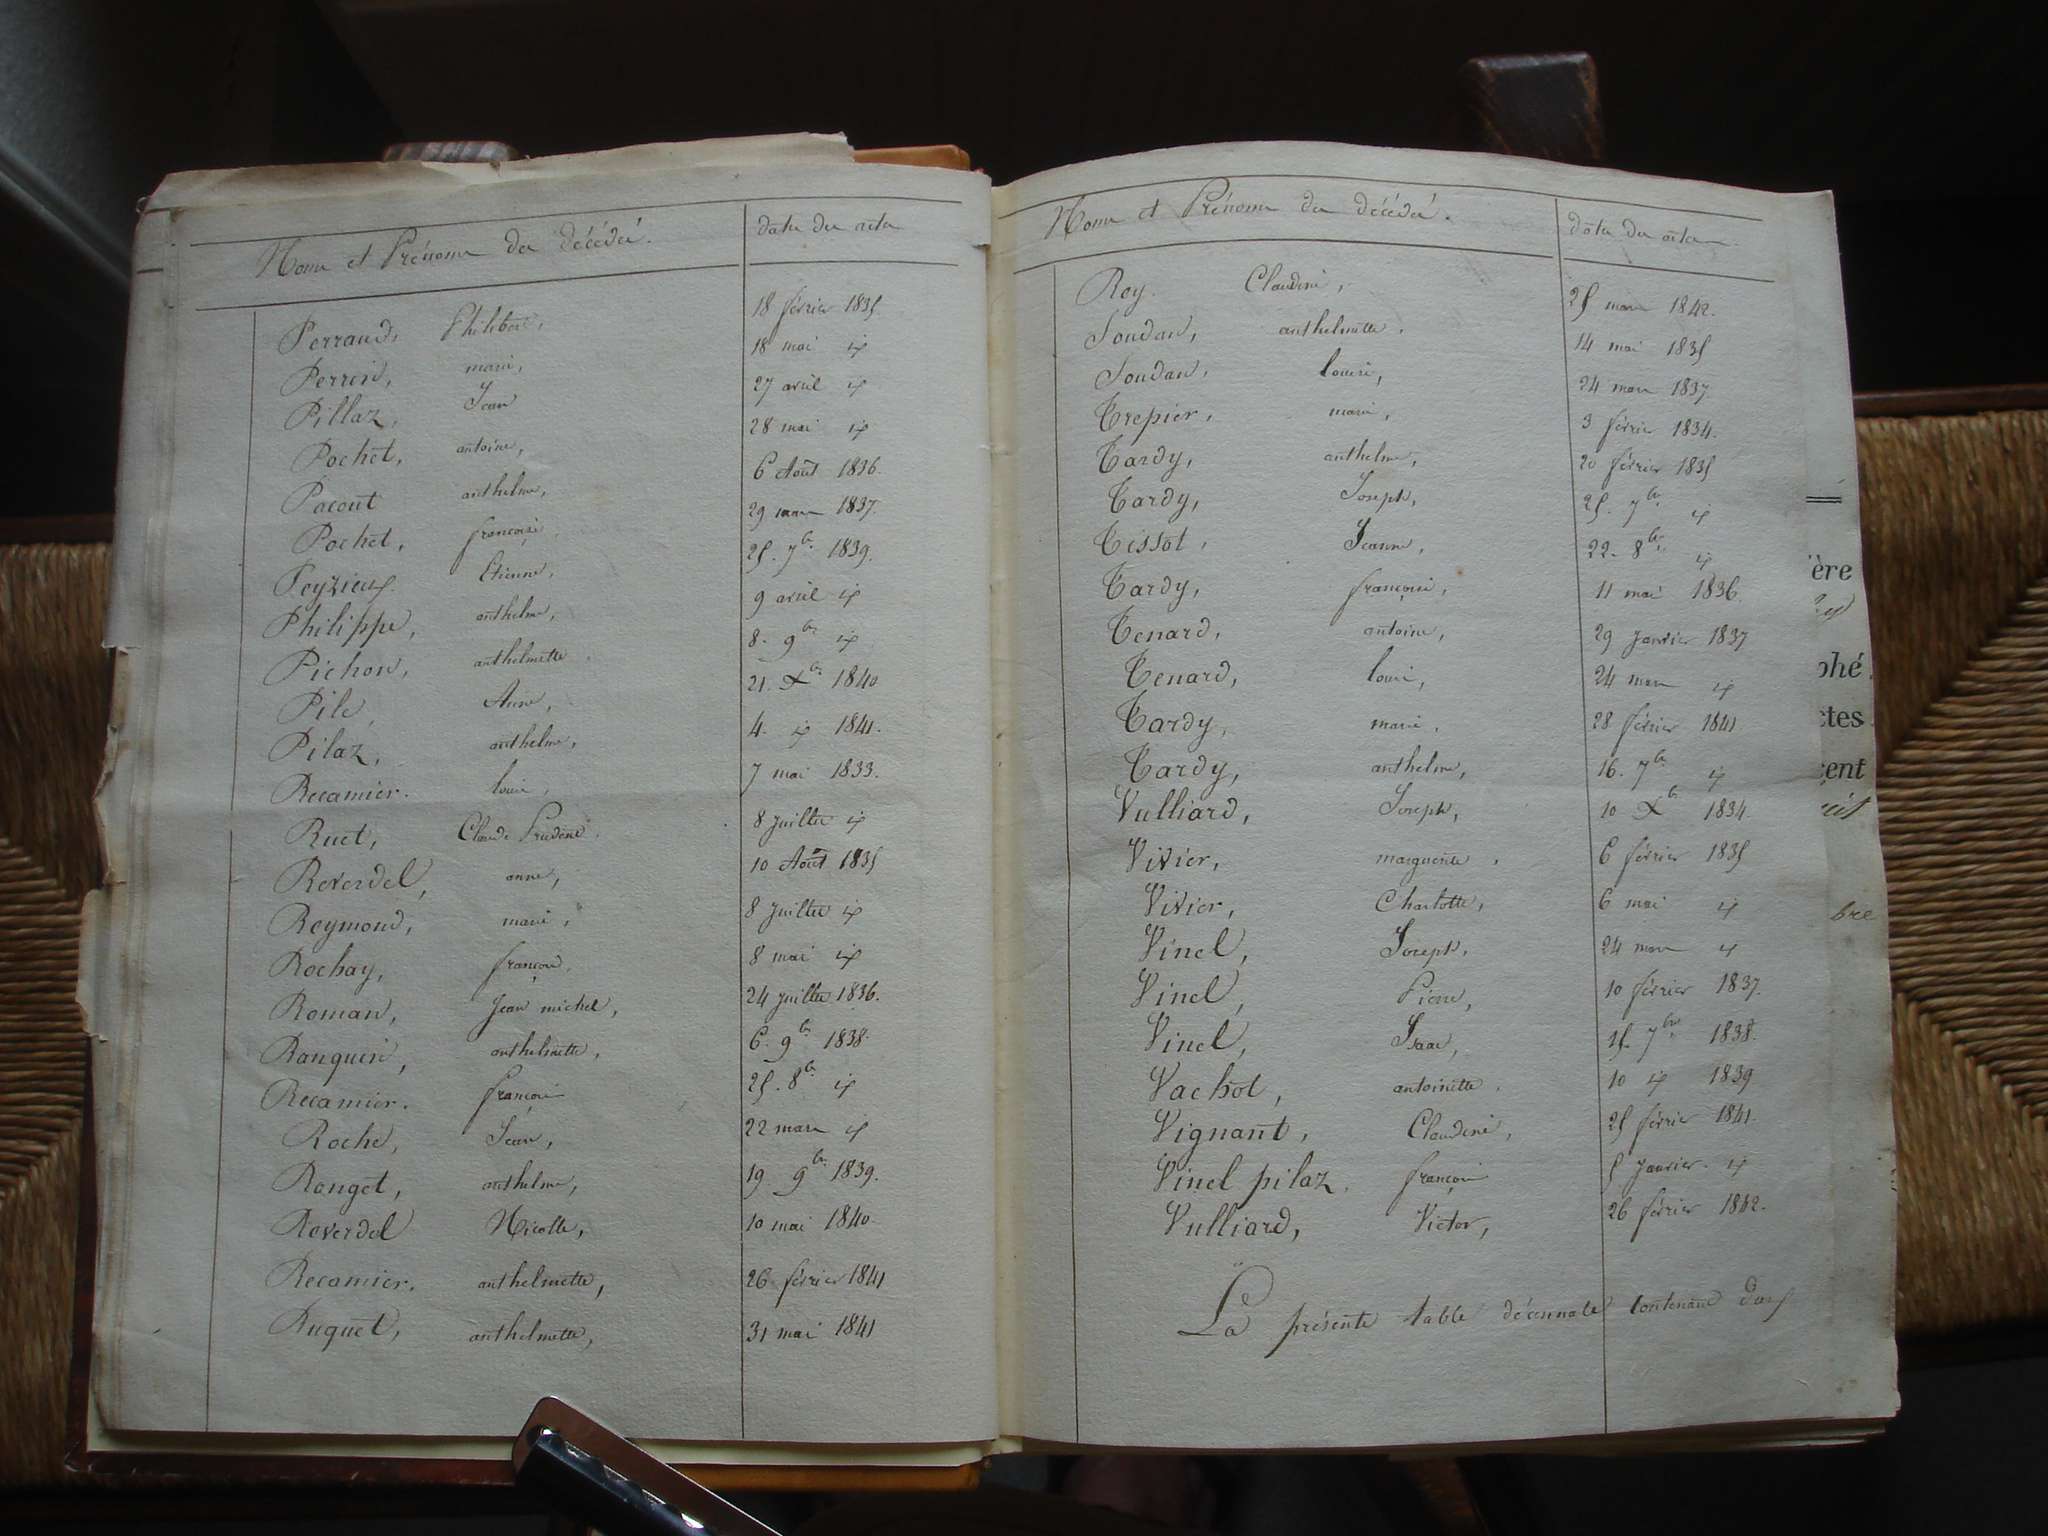 Noms et Prénoms des décédés. date des actes
Perraud, Philibert, 18 février 1835
Perrin, marie, 18 mai id
Pillaz, Jean 27 avril id
Pochet, antoine, 28 mai id
Pacout anthelme, 6 Août 1836.
Pochet, françoise, 29 mars 1837.
Peyzieux Etienne, 25. 7bre 1839.
Philippe, anthelme, 9 avril id
Pichon, anthelmette. 8. 9bre id
Pile, Anne, 21. Xbre 1840
Pilaz, anthelme, 4. id 1841.
Recamier. louise, 7 mai 1833.
Ruet, Claude 8 Juillet id
Reverdel, anne, 10 Août 1835
Reymond, marie, 8 Juillet id
Rochay, 8 mai id
Roman, Jean michel, 24 Juillet 1836.
Ranquin, anthelmette, 6. 9bre 1838.
Recamier. 25. 8bre id
Roche, Jean, 22 mars id
Ronget, anthelme, 19 9bre 1839.
Reverdel Nicolle, 10 mai 1840
Recamier. anthelmette, 26 février 1841
Ruquet, anthelmette, 31 mai 1841
Noms et Prénoms des décédés. date des actes.
Rey. Claudine, 25 mars 1842.
Soudan, anthelmette. 14 mai 1835
Soudan, louise, 24 mars 1837.
Trepier, marie, 3 février 1834.
Tardy, anthelme, 20 février 1835
Tardy, Joseph, 25. 7bre id
Tissot, Jeanne, 22. 8bre id
Tardy, françoise, 11 mai 1836.
Tenard, antoine, 29 Janvier 1837
Tenard, louise, 24 mars id
Tardy, marie, 28 février 1841
Tardy, anthelme, 16. 7bre id
Vulliard, Joseph, 10 Xbre 1834.
Vivier, marguerite, 6 février 1835
Vivier, Charlotte, 6 mai id
Vinel, Joseph, 24 mars id
Vinel, Pierre, 10 février 1837.
Vinel, Isaac, 25. 7bre 1838.
Vachot, antoinette. 10 id 1839
Vignant, Claudine, 25 février 1841.
Vinel pilaz, 5 Janvier. id
Vulliard, Victor, 26 février 1842.
La présente table décennale contenant dans
ère
phé
ctes
cent
bre